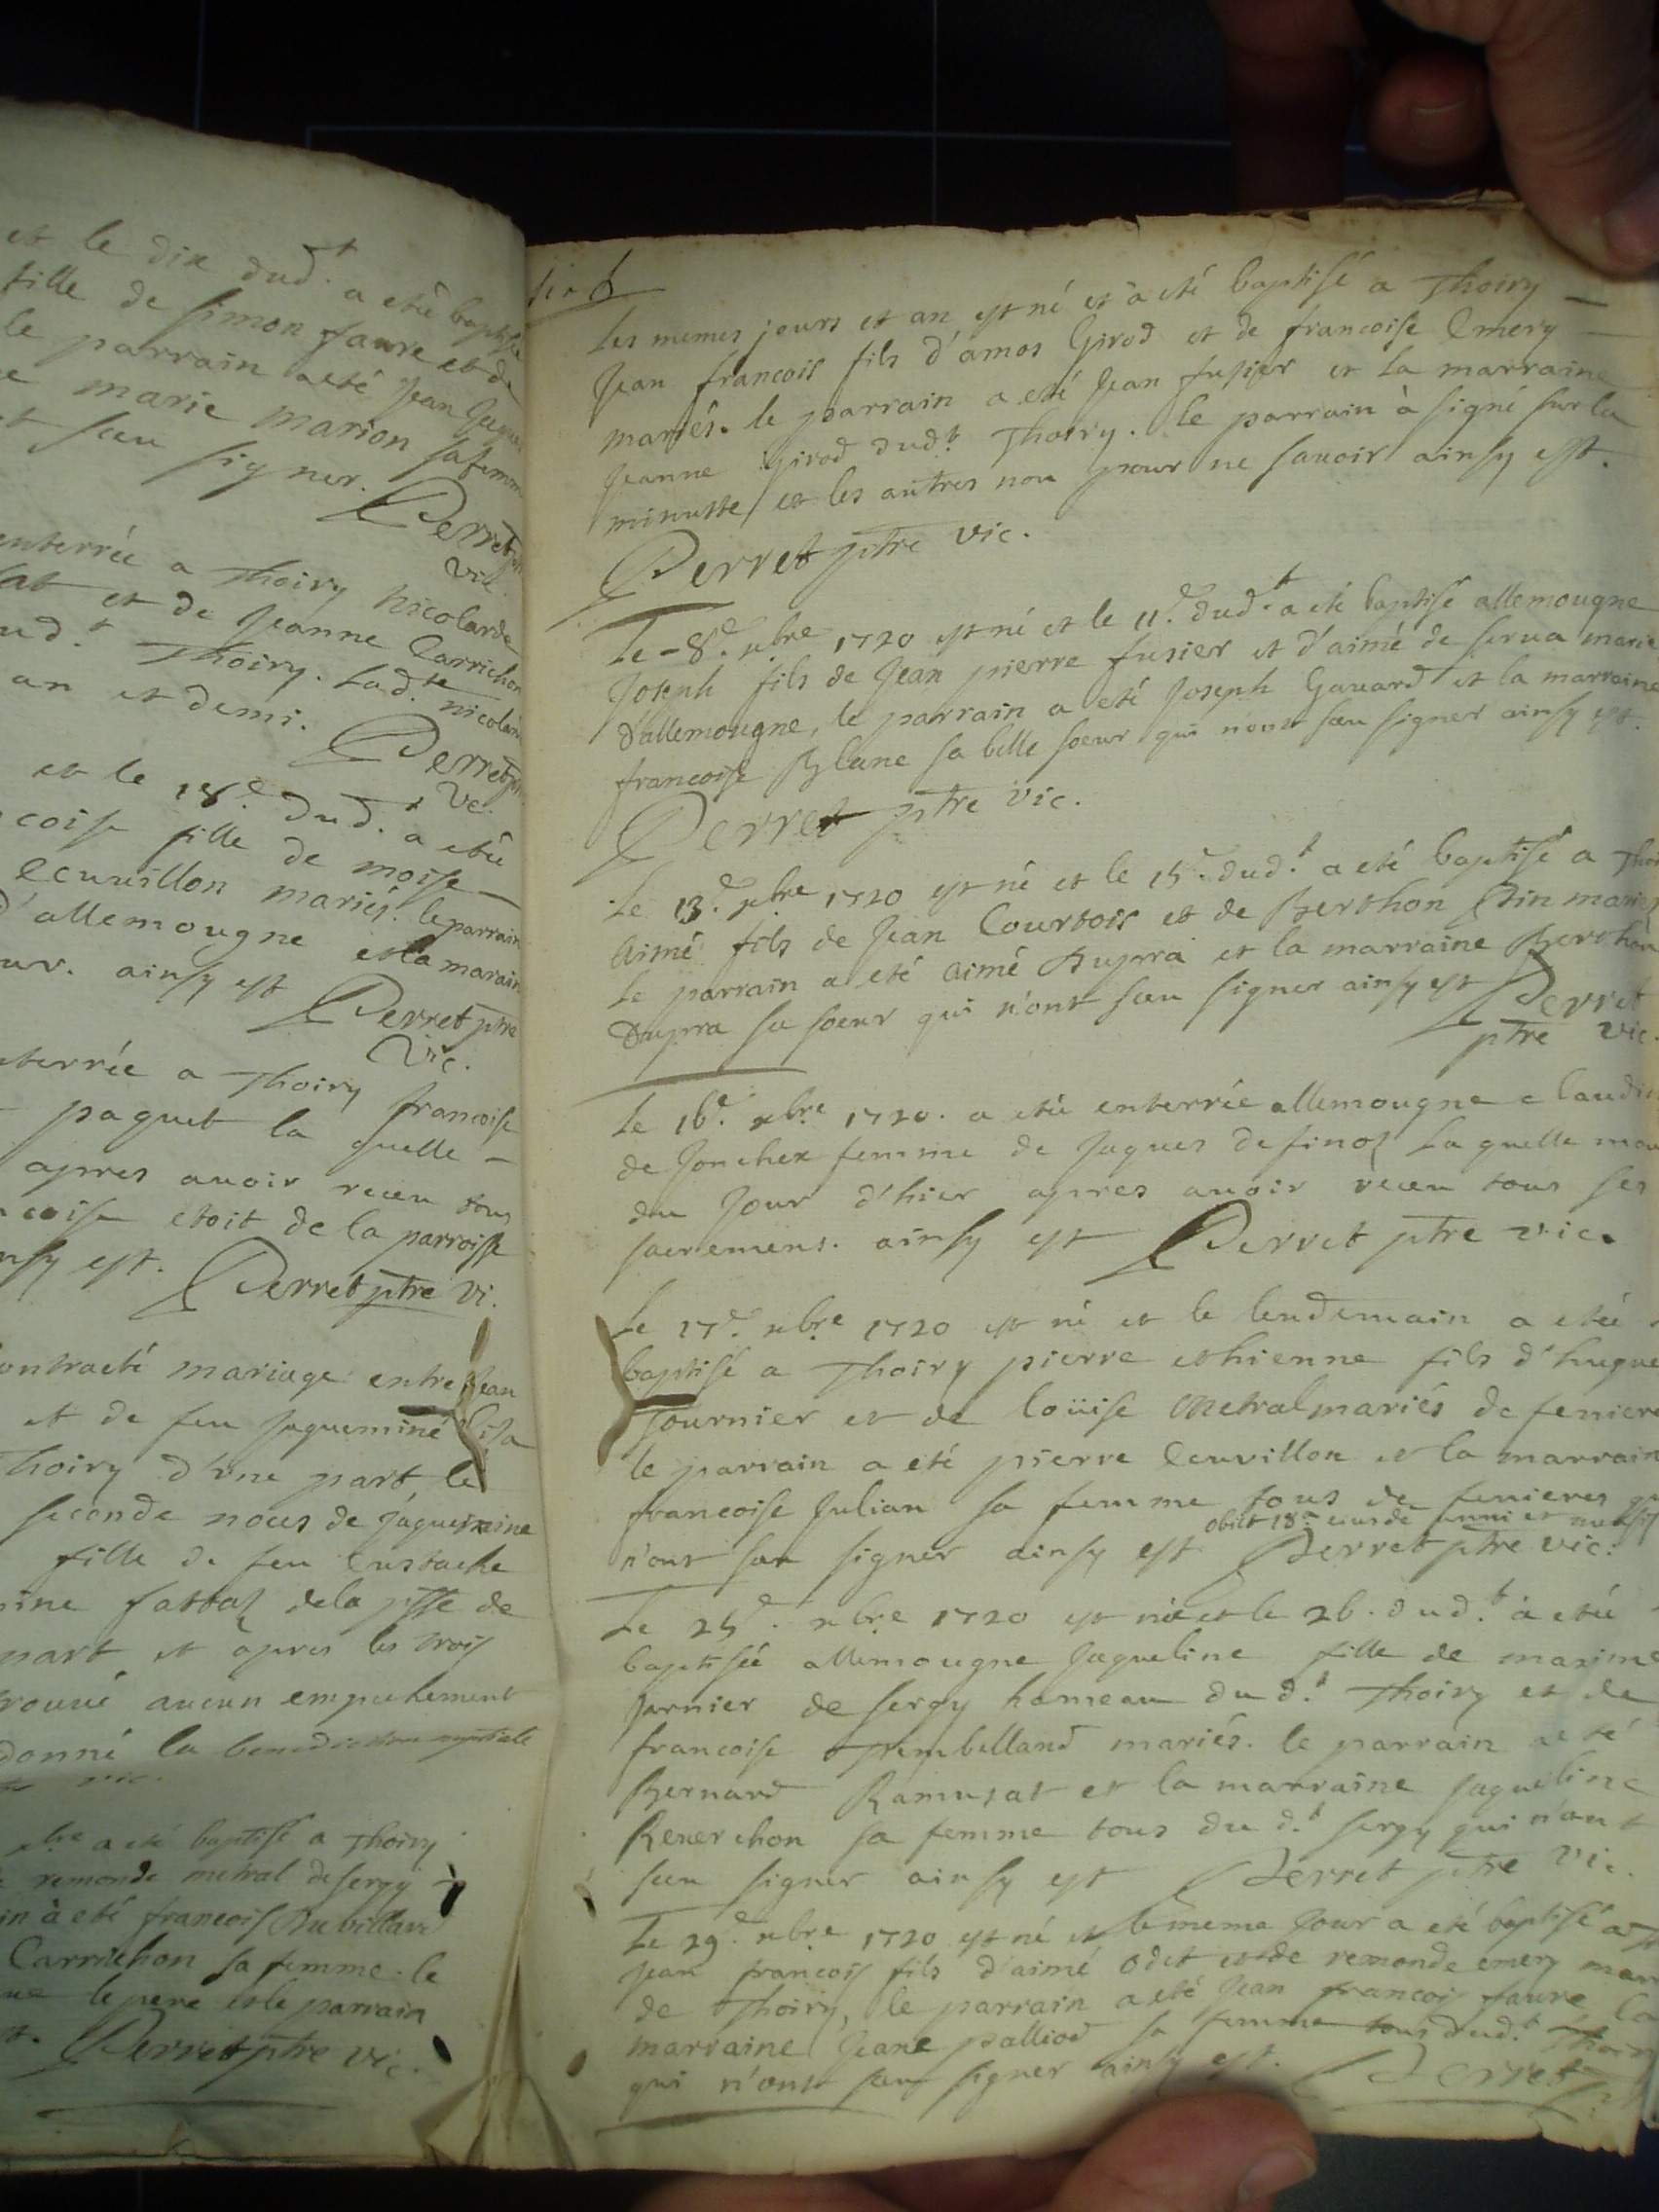 et le dix dud.t a eté baptisée
fille de simon faure et de
le parrain a eté Jean Jaque
marie marion sa femme
sceu signer.
Perret
vic.
enterrée a Thoiry nicolarde
et de Jeanne Carrichon
dud.t Thoiry. Lad.te nicolard
an et demi.
Perret
Vc.
et le 18.e dud.t a etée
coise fille de moise
Ecuuillon mariés. le parrain
d'allemougne et la marain
ainsy est
Perret ptre
Vic.
enterrée a Thoiry francoise
paquet la quelle
apres auoir receu tous
coise etoit de la parroisse
ainsy est.
Perret ptre vi.
contracté mariage entre Jean
et de feu Jaquemine
Thoiry d'une part, le
seconde noces de jaquemine
fille de feu Eustache
dela psse de
part et apres les trois
trouué aucun empechement
donné la benediction nuptiale
vic.
bre a eté baptisé a Thoiry
remonde metral de sergy
à eté francois Dubillard
Carrichon sa femme. le
le pere et le parrain
Perret ptre vic.
Les memes jours et an est né et a eté baptisé a Thoiry
Jean francois fils d'amos Girod et de francoise Emery
mariés. le parrain a eté Jean fusier et la marraine
Jeanne Girod dud.t Thoiry. le parrain à signé sur la
minutte et les autres non pour ne sauoir ainsy est.
Perret ptre vic.
Le 8.e 1720 est né et le 11.e dud.t a eté baptisé allemougne
Joseph fils de Jean pierre fusier et d'aimé de serua marie
d'allemougne, le parrain a eté Joseph Gauard et la marraine
francoise Blanc sa belle soeur qui n'ont sceu signer ainsy est.
Perret ptre vic.
Le 13.e 1720 est né et le 15.e dud.t a eté baptisé a Thoi
Aimé fils de Jean Courtois et de Berthon mariés
Le parrain a eté Aimé Dupra et la marraine Berthon
Dupra sa soeur qui n'ont sceu signer ainsy est
Perret
ptre vic.
Le 16.e 1720. a etée enterrée allemougne claudi
de Joncher femme de Jaques definos La quelle mou
du Jour d'hier apres auoir receu tous ses
sacremens. ainsy est Perret ptre vic.
Le 17.e 1720 est né et le lendemain a etée
baptisé a Thoiry pierre ethienne fils d'hugue
Tournier et de Loüise Metral mariés de feniere
le parrain a eté pierre Ecuvillon et la marrain
francoise Julian sa femme tous de fenieres
obiit 18.a
n'ont sceu signer ainsy est Perret ptre vic.
Le 25.e 1720 est née et le 26. dud.t a etée
baptisée allemougne Jaqueline fille de maxime
Jarnier de sergy hameau dud.t Thoiry et de
francoise mariés. le parrain a eté
Bernard Ramusat et la marraine Jaqueline
Reuerchon sa femme tous dud.t sergy qui n'ont
sceu signer ainsy est Perret ptre vic.
Le 29.e 1720 est né et le meme Jour a eté baptisé a
Jean francois fils d'aimé Odet et de remonde emery mar
de Thoiry, le parrain a eté Jean francois faure la
marraine Jeane palliod sa femme tous dud.t Thoiry
qui n'ont sceu signer ainsy est. Perret